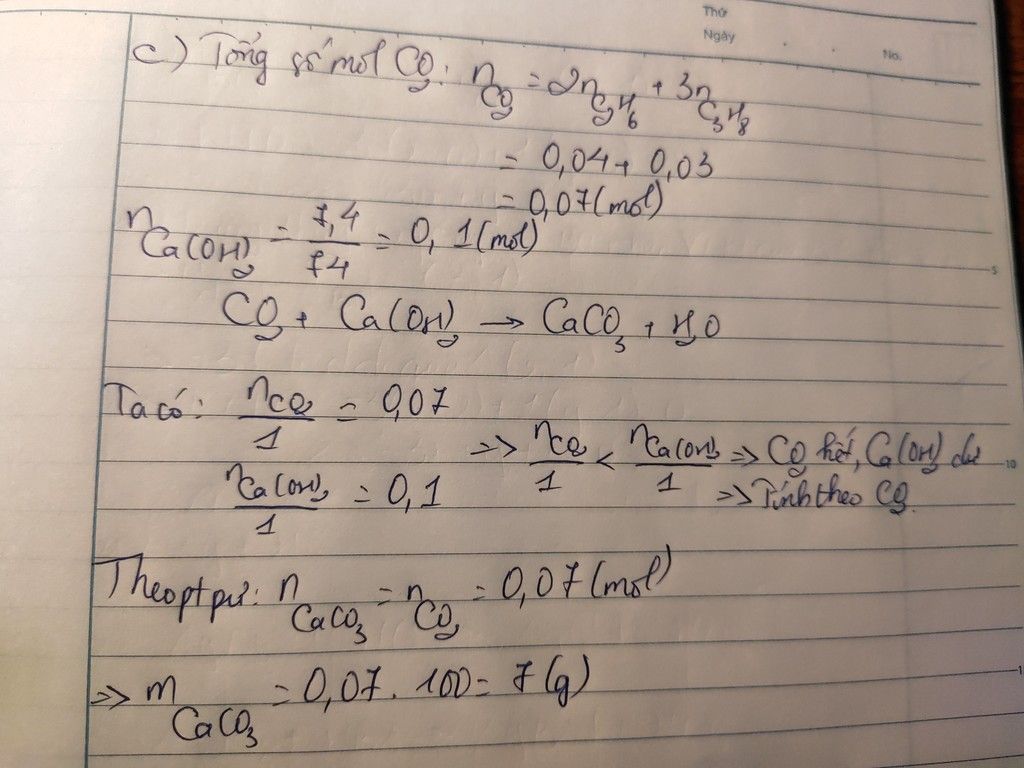 Thứ
Ngày . . No.
c) Tổng số mol CO₂: n CO₂ = 2n C₂H₆ + 3n C₃H₈
= 0,04 + 0,03
= 0,07 (mol)
n Ca(OH)₂ = 7,4/74 = 0,1 (mol)
5
CO₂ + Ca(OH)₂ → CaCO₃ + H₂O
Ta có: nCO₂/1 = 0,07
=> nCO₂/1 < nCa(OH)₂/1 => CO₂ hết, Ca(OH)₂ dư
10
nCa(OH)₂/1 = 0,1 => Tính theo CO₂.
Theo ptpư: n CaCO₃ = n CO₂ = 0,07 (mol)
=> m CaCO₃ = 0,07 . 100 = 7 (g)